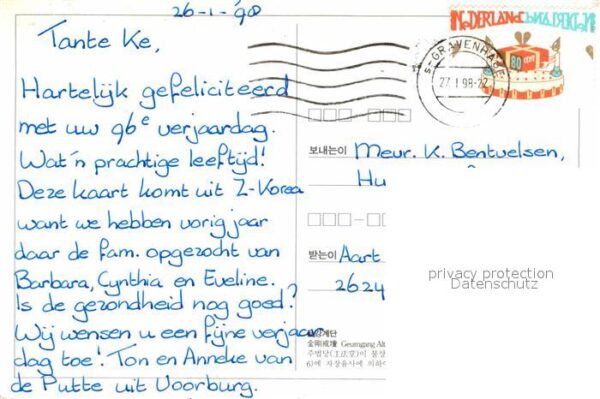 26-1-'98
Tante Ke,
Hartelijk gefeliciteerd
met uw 96e verjaardag.
Wat 'n prachtige leeftijd!
Deze kaart komt uit Z-Korea
want we hebben vorig jaar
daar de fam. opgezocht van
Barbara, Cynthia en Eveline.
Is de gezondheid nog goed?
Wij wensen u een fijne verjaar
dag toe! Ton en Anneke van
de Putte uit Voorburg.
NEDERLAND NEDERLAND
80 cent
'S-GRAVENHAGE
27.1.98-22
보내는이 Mevr. K. Bentvelsen,
Hu
받는이 Aart
2624
privacy protection
Datenschutz
금강계단
金剛戒壇 Geumgang Alt
주법당(主法堂)이 불상
6)에 자장율사에 의하